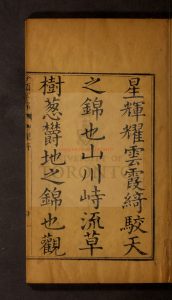 星輝耀雲霞綺駮天
之錦也山川峙流草
樹葱欝地之錦也觀